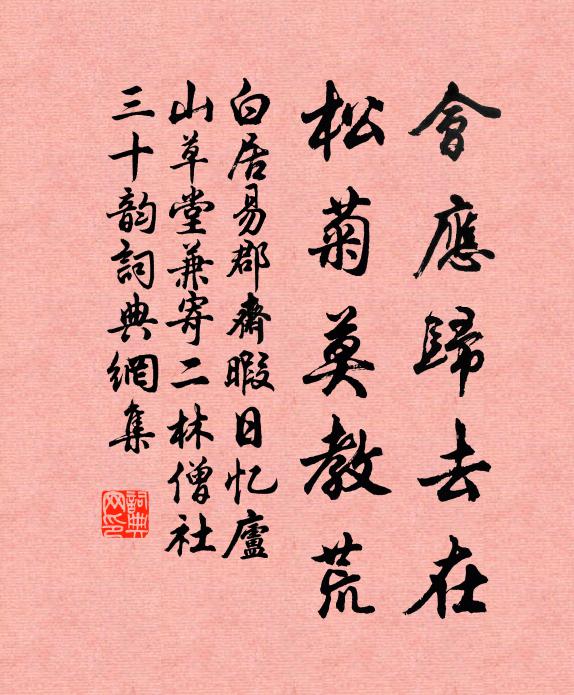 會應歸去在
松菊莫教荒
白居易郡齋暇日忆廬
山草堂兼寄二林僧社
三十韵詞典網集
詞典
网印